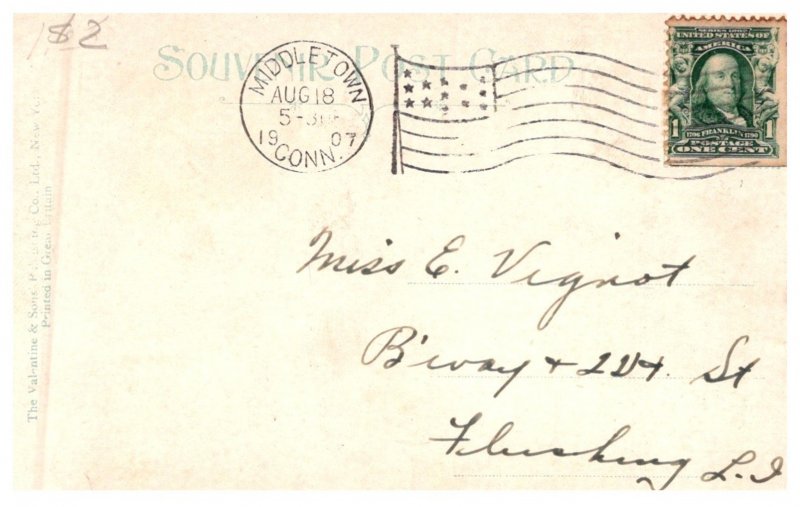 182
SOUVENIR POST CARD
MIDDLETOWN
AUG 18
1907
CONN.
SERIES 1902
UNITED STATES OF
AMERICA
1 1706 FRANKLIN 1790 1
POSTAGE
ONE CENT
Miss E. Vignot
B'way + 22d. St
Flushing L.I
The Valentine & Sons Co., Ltd., New
Printed in Great Britain